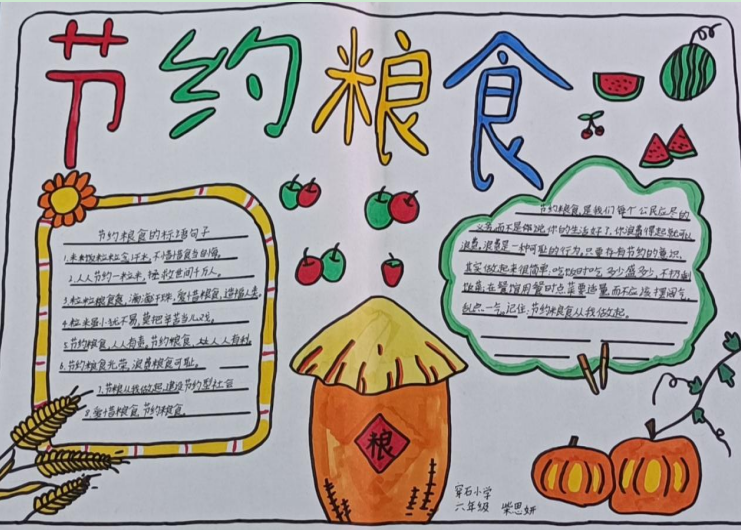 节约粮食
节约粮食的标语句子
1.米饭粒粒含汗水,不惜粮食当自悔。
2.人人节约一粒米,拯救世间千万人。
3.粒粒粮食,滴滴汗水,爱惜粮食,造福人类。
4.粒米虽小犹不易,莫把辛苦当儿戏。
5.节约粮食,人人有责,节约粮食,
6.节约粮食光荣,浪费粮食可耻。
7.节粮从我做起,建设节约型社会
8.爱惜粮食,节约粮食。
节约粮食,是我们每个公民应尽的
义务,而不是你说你的生活好了,你浪费得起就可以
浪费。浪费是一种可耻的行为,只要存有节约的意识,
其实做起来很简单,吃饭时吃多少盛多少,不扔剩
饭菜,在餐馆用餐时点菜要适量,而不应该摆阔气,
乱点一气。记住:节约粮食从我做起。
粮
六年级